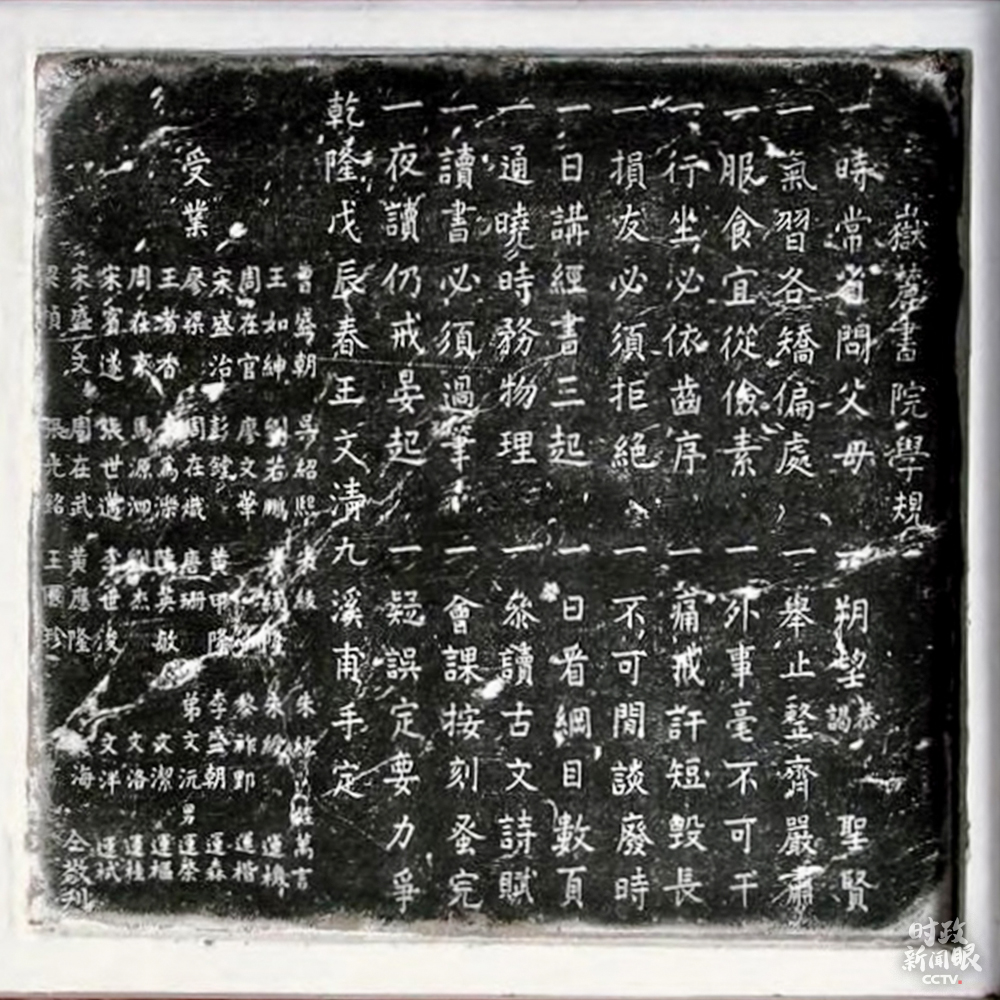 嶽麓書院學規
一時常省問父母 一朔望恭謁聖賢
一氣習各矯偏處 一舉止整齊嚴肅
一服食宜從儉素 一外事毫不可干
一行坐必依齒序 一痛戒訐短毀長
一損友必須拒絕 一不可閒談廢時
一日講經書三起 一日看綱目數頁
一通曉時務物理 一參讀古文詩賦
一讀書必須過筆 一會課按刻蚤完
一夜讀仍戒晏起 一疑誤定要力爭
乾隆戊辰春王文清九溪甫手定
受業
曾盛朝 吳紹熙 萬言
王如紳 劉若鵬
周在官 廖文華 黎祚郢 運楷
宋盛治 彭 黃甲隆 李盛朝 運森
廖梁 周在熾 唐珊 弟文沅 男運榮
王者香 為樂 陳英敏 文潔 運樞
周在 馬源泗 劉杰 文洛 運桂
宋賓遂 張世 李世俊 文洋 運斌
宋盛文 周在武 黃應隆 海 仝敬刊
梁 張先銘 王 珍
时政
新闻眼
CCTV.